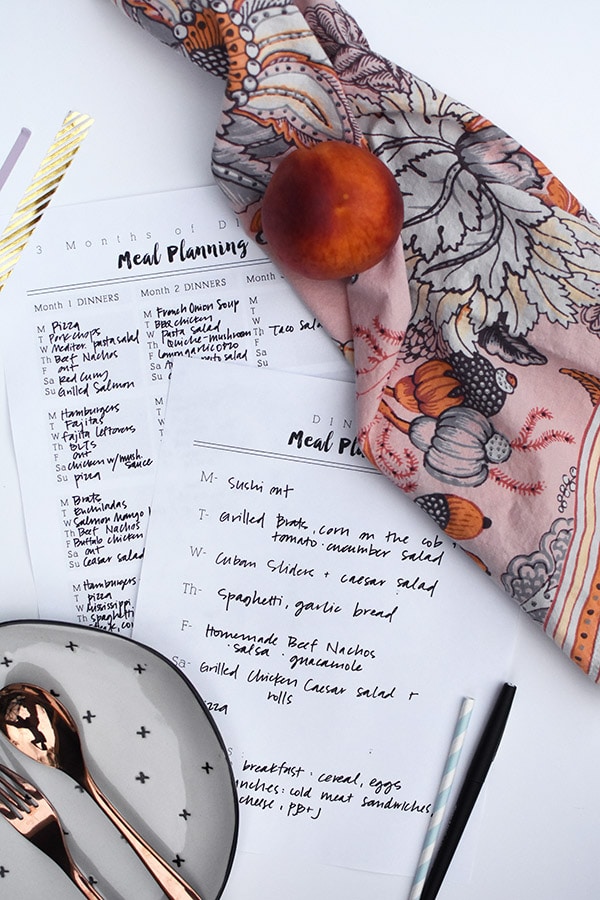 3 Months of Di
Meal Planning
Month 1 DINNERS
M Pizza
T Pork chops
W Mediter. pasta salad
Th Beef Nachos
F out
Sa Red Curry
Su Grilled Salmon
M Hamburgers
T Fajitas
W Fajita leftovers
Th BLTS
F out
Sa chicken w/ mush. sauce
Su pizza
M Brats
T Enchiladas
W Salmon Mango
Th Beef Nachos
F Buffalo chicken
Sa out
Su Ceasar salad
M Hamburgers
T pizza
W Mississippi
Th Spaghetti
Month 2 DINNERS
M French Onion Soup
T BBQ chicken
W Pasta Salad
Th Quiche - mushroom
F Lemon garlic orzo
Sa salad
Su
M
T
W
Th Taco Sala
F
Sa
Su
DIN
Meal Pla
M- Sushi out
T- Grilled Brats, corn on the cob +
tomato cucumber salad
W- Cuban Sliders + caesar salad
Th- Spaghetti, garlic bread
F- Homemade Beef Nachos
salsa guacamole
Sa- Grilled Chicken Caesar salad +
rolls
izza
breakfast: cereal, eggs
unches: cold meat sandwiches,
cheese, PB+J